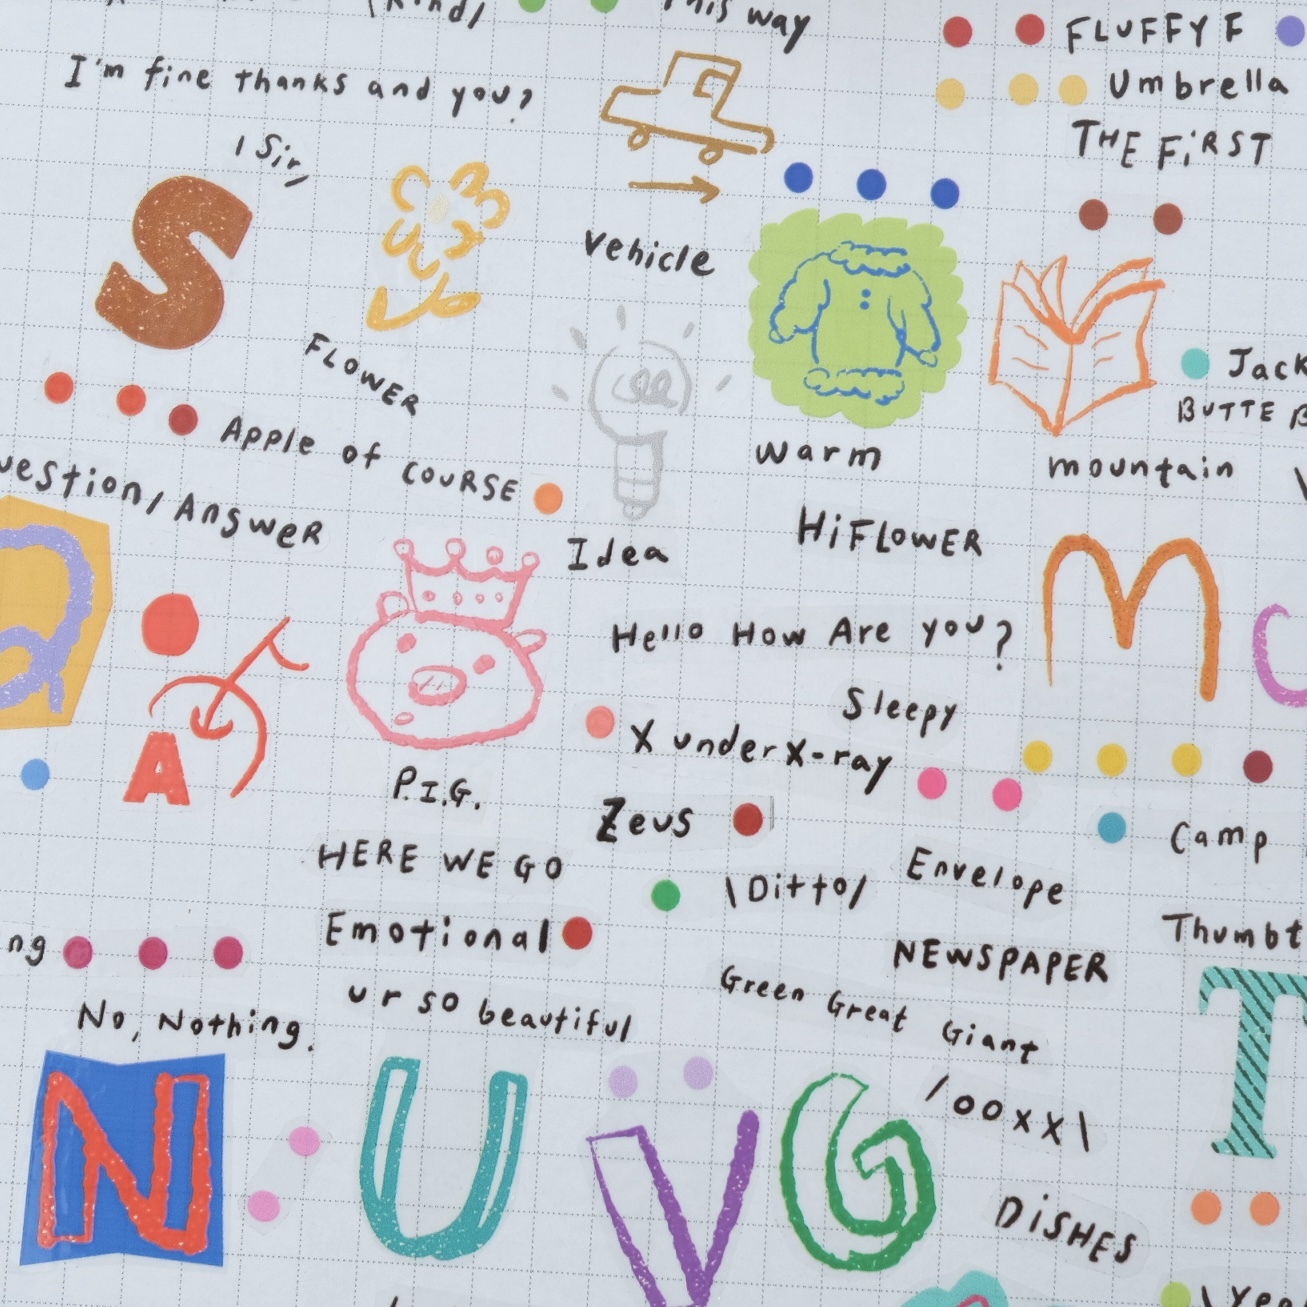 \Kind/
This way
FLUFFY F
I'm fine thanks and you?
Umbrella
THE FiRST
1 Sir,
S
Vehicle
FLOWER
Jack
BUTTE
Apple of COURSE
warm
mountain
uestion/AnsweR
Idea
HiFLOWER
Q
A
M
Hello How Are you?
Sleepy
X under X-ray
P.I.G.
Zeus
Camp
HERE WE GO
Envelope
\Ditto/
Emotional
Thumbt
ng
NEWSPAPER
ur so beautiful
Green Great Giant
No, Nothing.
T
/ooxx\
N
U
V
G
DiSHES